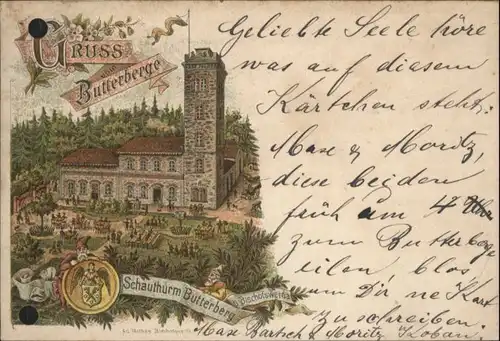 GRUSS
vom
Butterberge
Schauthurm Butterberg
b. Bischofswerda
Geliebte Seele höre
was auf diesem
Kärtchen steht:
Maxe & Moritz,
diese beiden
früh um 4 Uhr
zum Butterberge
eilen, blos
um Dir ne Kart
zu schreiben.
Maxe Bartsch & Moritz Koban.